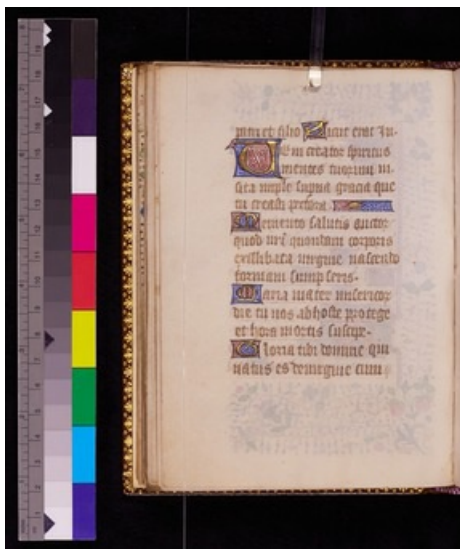 patri et filio Sicut erat In-
Veni creator spiritus
mentes tuorum vi-
sita imple superna gracia que
tu creasti pectora
Memento salutis auctor
quod nri quondam corporis
ex illibata virgine nascendo
formam sumpseris.
Maria mater misericor
die tu nos ab hoste protege
et hora mortis suscipe.
Gloria tibi domine qui
natus es de virgine cum